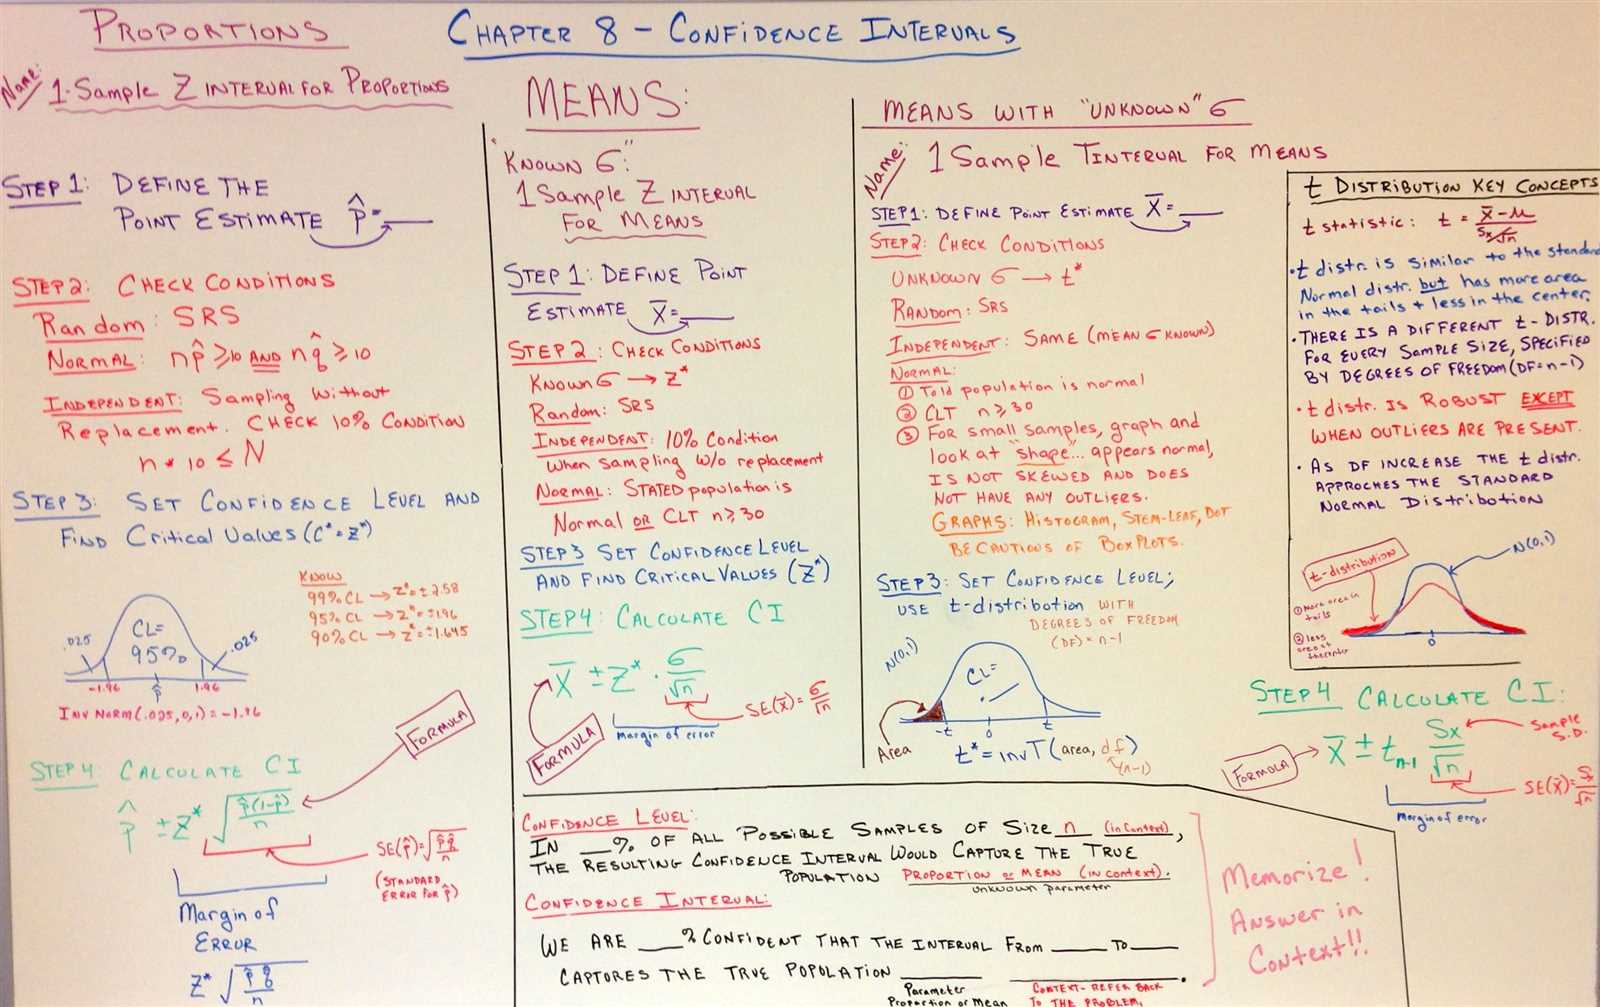 PROPORTIONS
CHAPTER 8 - CONFIDENCE INTERVALS
Name:
1-Sample Z INTERVAL FOR PROPORTIONS
STEP 1: DEFINE THE
POINT ESTIMATE p̂ = ____
STEP 2: CHECK CONDITIONS
Random: SRS
NORMAL: np̂ ≥ 10 AND nq̂ ≥ 10
INDEPENDENT: Sampling Without
Replacement. CHECK 10% CONDITION
n * 10 ≤ N
STEP 3: SET CONFIDENCE LEVEL AND
FIND Critical Values (C* = Z*)
KNOW
99% CL → Z* = ± 2.58
95% CL → Z* = ± 1.96
90% CL → Z* = ± 1.645
.025
CL =
95%
.025
-1.96 p̂ 1.96
INV NORM (.025, 0, 1) = -1.96
FORMULA
STEP 4: CALCULATE CI
p̂ ± Z* √(p̂(1-p̂)/n)
SE(p̂) = √(p̂q̂/n)
(STANDARD
ERROR FOR p̂)
Margin of
ERROR
Z* √(p̂q̂/n)
MEANS:
"KNOWN σ":
1 Sample Z INTERVAL
FOR MEANS
STEP 1: DEFINE POINT
ESTIMATE x̄ = ____
STEP 2: CHECK CONDITIONS
KNOWN σ → Z*
Random: SRS
INDEPENDENT: 10% Condition
when sampling w/o replacement
NORMAL: STATED population is
Normal OR CLT n ≥ 30
STEP 3 SET CONFIDENCE LEVEL
AND FIND CRITICAL VALUES (Z*)
STEP 4: CALCULATE CI
x̄ ± Z* · σ/√n
SE(x̄) = σ/√n
margin of error
FORMULA
MEANS WITH "UNKNOWN" σ
Name:
1 Sample T INTERVAL FOR MEANS
STEP 1: DEFINE POINT ESTIMATE x̄ = ____
STEP 2: CHECK CONDITIONS
UNKNOWN σ → t*
RANDOM: SRS
INDEPENDENT: SAME (MEAN σ KNOWN)
NORMAL:
① Told population is normal
② CLT n ≥ 30
③ For small samples, graph and
look at "shape"... appears normal,
IS NOT SKEWED AND DOES
NOT HAVE ANY OUTLIERS.
GRAPHS: HISTOGRAM, STEM-LEAF, DOT
BE CAUTIONS OF BOXPLOTS.
STEP 3: SET CONFIDENCE LEVEL;
USE t-distribution WITH
DEGREES OF FREEDOM
(DF) = n-1
N(0,1)
CL =
Area
-t 0 t
t* = invT (area, df)
(n-1)
t DISTRIBUTION KEY CONCEPTS
t statistic: t = (x̄ - μ)/(Sx/√n)
• t distr. is similar to the standard
Normal distr. but has more area
in the tails + less in the center.
• THERE IS A DIFFERENT t-DISTR.
FOR EVERY SAMPLE SIZE, SPECIFIED
BY DEGREES OF FREEDOM (DF = n-1)
• t distr. IS ROBUST EXCEPT
WHEN OUTLIERS ARE PRESENT.
• AS DF INCREASE THE t distr.
APPROCHES THE STANDARD
NORMAL DISTRIBUTION
t-distribution
N(0,1)
① More area in
tails
② less
area at
the center
0
STEP 4 CALCULATE CI:
FORMULA
x̄ ± tn-1 Sx/√n
Sample
S.D.
SE(x̄) = Sx/√n
Margin of error
CONFIDENCE LEVEL:
IN ___% OF ALL POSSIBLE SAMPLES OF SIZE n (in context),
THE RESULTING CONFIDENCE INTERVAL WOULD CAPTURE THE TRUE
POPULATION PROPORTION or MEAN (in context).
unknown parameter
CONFIDENCE INTERVAL:
WE ARE ____% CONFIDENT THAT THE INTERVAL FROM ____ TO ____
CAPTURES THE TRUE POPULATION ____ ____.
Parameter
Proportion or Mean
CONTEXT- REFER BACK
TO THE PROBLEM.
Memorize!
Answer in
Context!!